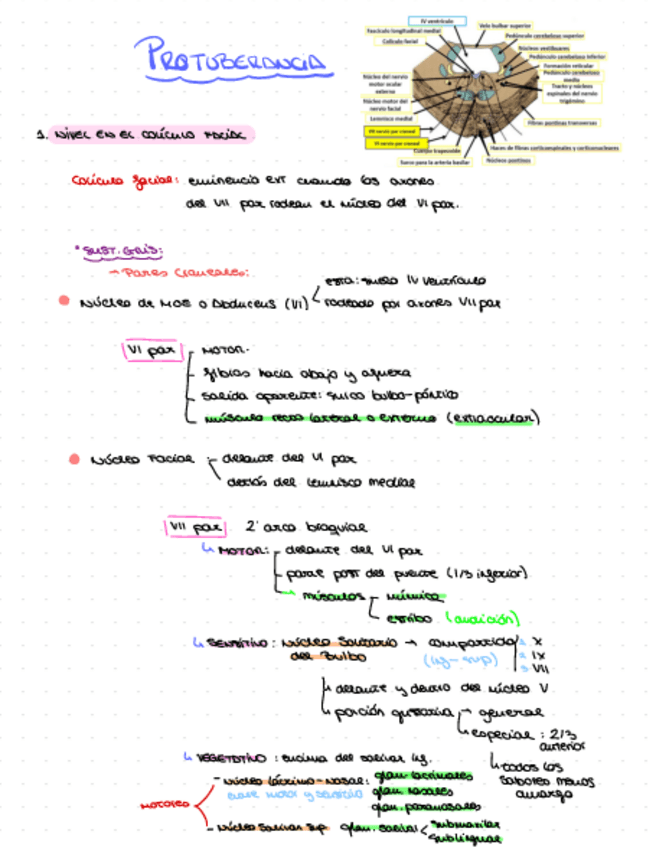 PROTUBERANCIA
IV ventrículo
Fascículo longitudinal medial
Velo bulbar superior
Pedúnculo cerebeloso superior
Colículo facial
Núcleos vestibulares
Pedúnculo cerebeloso inferior
Formación reticular
Pedúnculo cerebeloso medio
Núcleo del nervio motor ocular externo
Tracto y núcleos espinales del nervio trigémino
Núcleo motor del nervio facial
Lemnisco medial
Fibras pontinas transversas
VII nervio par craneal
VI nervio par craneal
Cuerpo trapezoide
Haces de fibras corticoespinales y corticonucleares
Surco para la arteria basilar
Núcleos pontinos
1. NIVEL EN EL COLÍCULO FACIAL
Colículo facial: eminencia ext cuando los axones
del VII par rodean el núcleo del VI par.
* SUST. GRIS:
→ Pares craneales:
esta: suelo IV ventrículo
Núcleo de MOE o Abducens (VI)
rodeado por axones VII par
VI par
MOTOR.
fibras hacia abajo y afuera
salida aparente: surco bulbo-póntico
músculo recto lateral o externo (extraocular)
Núcleo Facial
delante del VI par
detrás del lemnisco medial
VII par 2º arco braquial
↳ MOTOR: delante del VI par
parte post del puente (1/3 inferior)
→ músculos
mímica
estribo (audición)
↳ SENSITIVO: Núcleo Solitario → compartido
del Bulbo
(inf-sup)
1. X
2. IX
3. VII
↳ delante y dentro del núcleo V
↳ porción gustativa → general
↳ especial: 2/3
anterior
↳ todos los
sabores menos
amargo
↳ VEGETATIVO: encima del salivar inf.
- Núcleo lácrimo-nasal: glan. lacrimales
entre motor y sensitivo glan. nasales
glan. paranasales
MOTORES
- Núcleo Salivar Sup glan. salival
submaxilar
sublingual